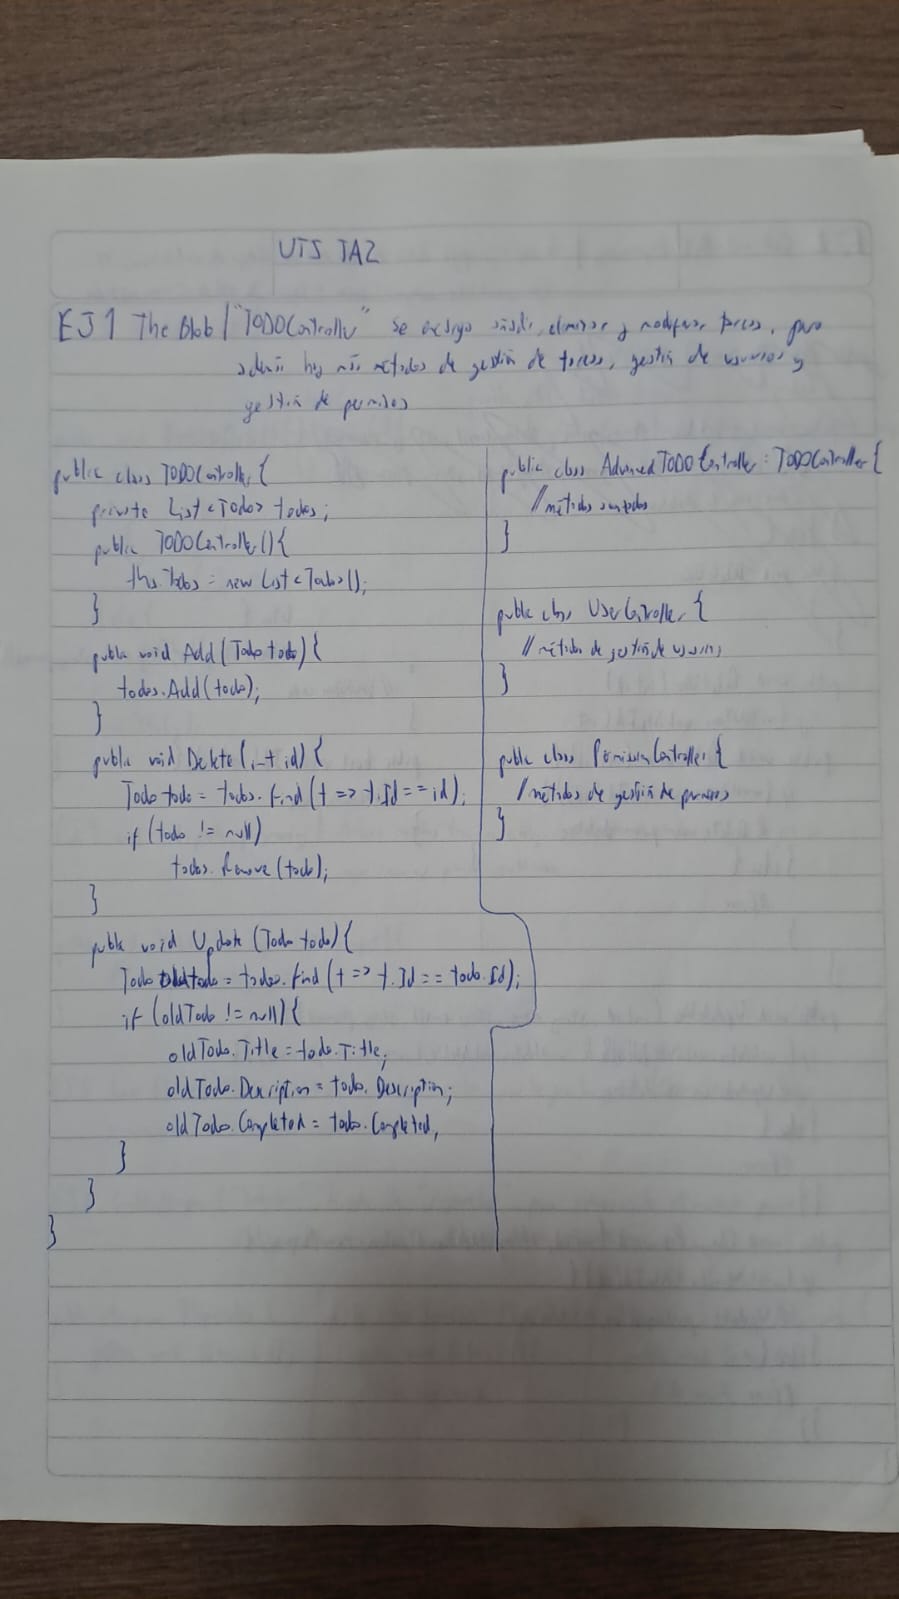 UT5 TA2
EJ1 The Blob / "TODOController" se encarga añadir, eliminar y modificar tareas, pero
además hay más métodos de gestión de tareas, gestión de usuarios y
gestión de permisos
public class TODOController {
private List<Todo> todos;
public TODOController(){
this.Todos = new List<Todos>();
}
public void Add(Todo todo){
todos.Add(todo);
}
public void Delete(int id){
Todo todo = todos.Find(t => t.Id == id);
if (todo != null)
todos.Remove(todo);
}
public void Update (Todo todo){
Todo oldtodo = todos.Find(t => t.Id == todo.Id);
if (oldTodo != null){
oldTodo.Title = todo.Title;
oldTodo.Description = todo.Description;
oldTodo.Completed = todo.Completed,
}
}
}
public class AdvancedTODOController : TODOController {
//métodos
}
public class UserController {
//métodos de gestión de usuarios
}
public class PermissionController {
//métodos de gestión de permisos
}